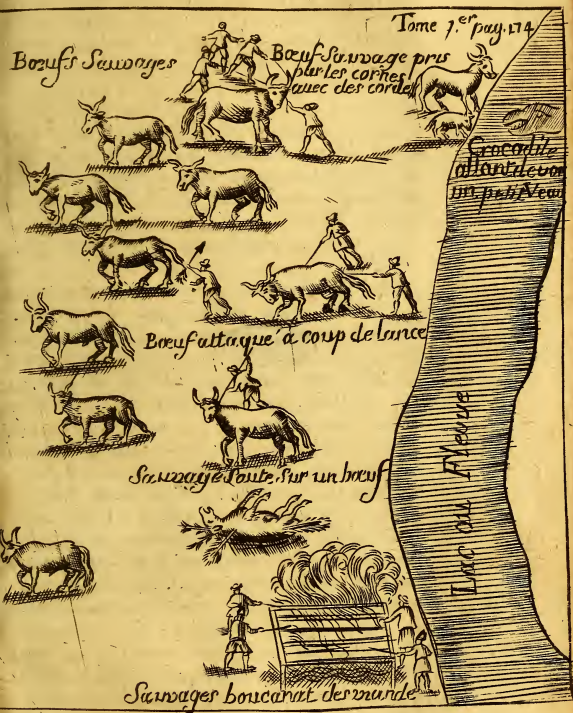 Tome 1.er pag. 174
Bœufs Sauvages
Bœuf Sauvage pris
par les cornes
avec des cordes
Crocodile
allant devor
un petit Veau
Bœuf attaqué a coup de lance
Sauvage Saute Sur un bœuf
Lac ou Fleuve
Sauvages boucanant des viande